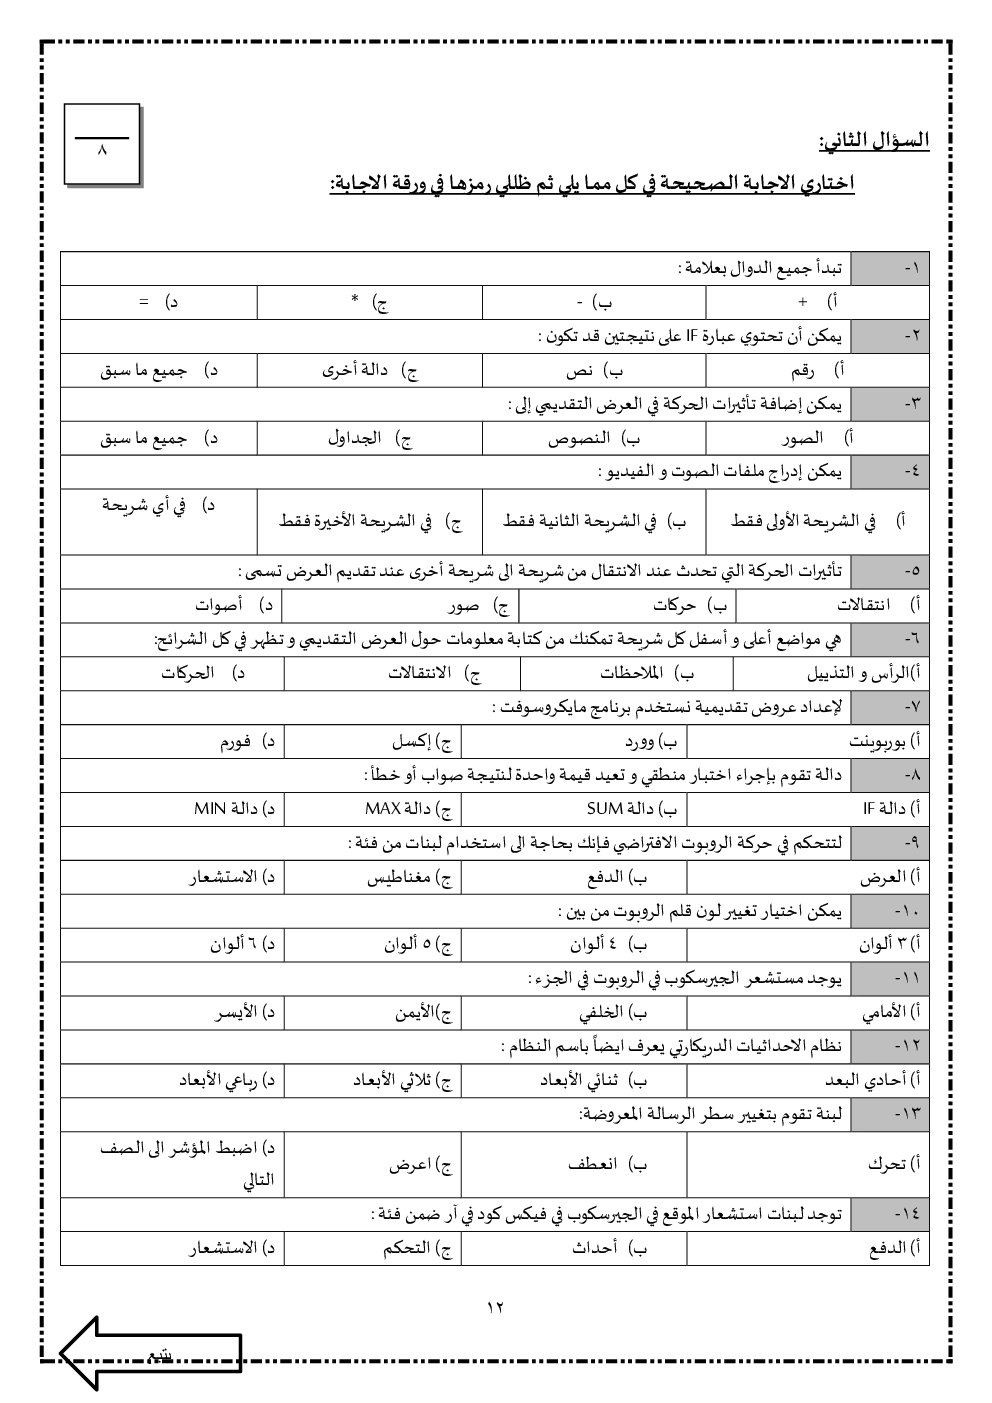 السؤال الثاني:
٨
اختاري الاجابة الصحيحة في كل مما يلي ثم ظللي رمزها في ورقة الاجابة:
١- تبدأ جميع الدوال بعلامة :
أ) + ب) - ج) * د) =
٢- يمكن أن تحتوي عبارة IF على نتيجتين قد تكون :
أ) رقم ب) نص ج) دالة أخرى د) جميع ما سبق
٣- يمكن إضافة تأثيرات الحركة في العرض التقديمي إلى :
أ) الصور ب) النصوص ج) الجداول د) جميع ما سبق
٤- يمكن إدراج ملفات الصوت و الفيديو :
أ) في الشريحة الأولى فقط ب) في الشريحة الثانية فقط ج) في الشريحة الأخيرة فقط د) في أي شريحة
٥- تأثيرات الحركة التي تحدث عند الانتقال من شريحة الى شريحة أخرى عند تقديم العرض تسمى :
أ) انتقالات ب) حركات ج) صور د) أصوات
٦- هي مواضع أعلى و أسفل كل شريحة تمكنك من كتابة معلومات حول العرض التقديمي و تظهر في كل الشرائح:
أ)الرأس و التذييل ب) الملاحظات ج) الانتقالات د) الحركات
٧- لإعداد عروض تقديمية نستخدم برنامج مايكروسوفت :
أ) بوربوينت ب) وورد ج) إكسل د) فورم
٨- دالة تقوم بإجراء اختبار منطقي و تعيد قيمة واحدة لنتيجة صواب أو خطأ :
أ) دالة IF ب) دالة SUM ج) دالة MAX د) دالة MIN
٩- لتتحكم في حركة الروبوت الافتراضي فإنك بحاجة الى استخدام لبنات من فئة :
أ) العرض ب) الدفع ج) مغناطيس د) الاستشعار
١٠- يمكن اختيار تغيير لون قلم الروبوت من بين :
أ) ٣ ألوان ب) ٤ ألوان ج) ٥ ألوان د) ٦ ألوان
١١- يوجد مستشعر الجيرسكوب في الروبوت في الجزء :
أ) الأمامي ب) الخلفي ج)الأيمن د) الأيسر
١٢- نظام الاحداثيات الدريكارتي يعرف ايضاً باسم النظام :
أ) أحادي البعد ب) ثنائي الأبعاد ج) ثلاثي الأبعاد د) رباعي الأبعاد
١٣- لبنة تقوم بتغيير سطر الرسالة المعروضة:
أ) تحرك ب) انعطف ج) اعرض د) اضبط المؤشر الى الصف
التالي
١٤- توجد لبنات استشعار الموقع في الجيرسكوب في فيكس كود في آر ضمن فئة :
أ) الدفع ب) أحداث ج) التحكم د) الاستشعار
١٢
يتبع